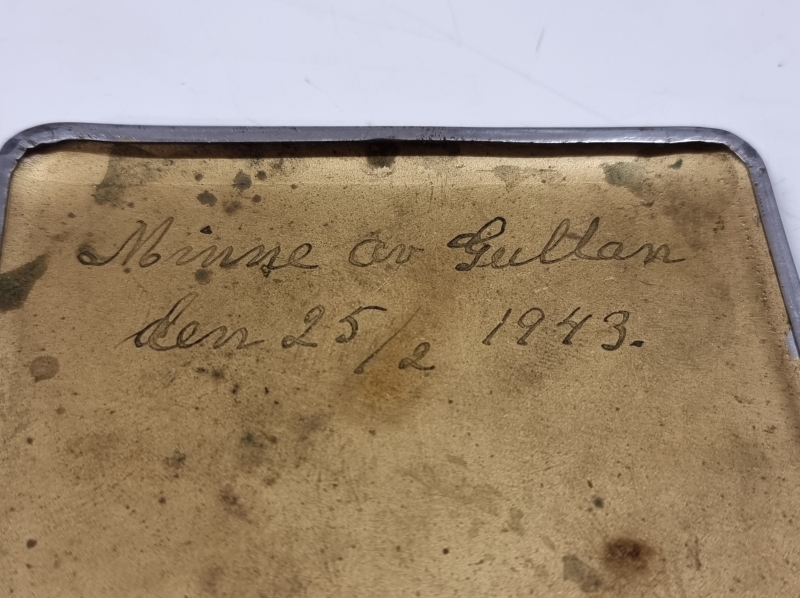 Minne av Gullan
den 25/2 1943.